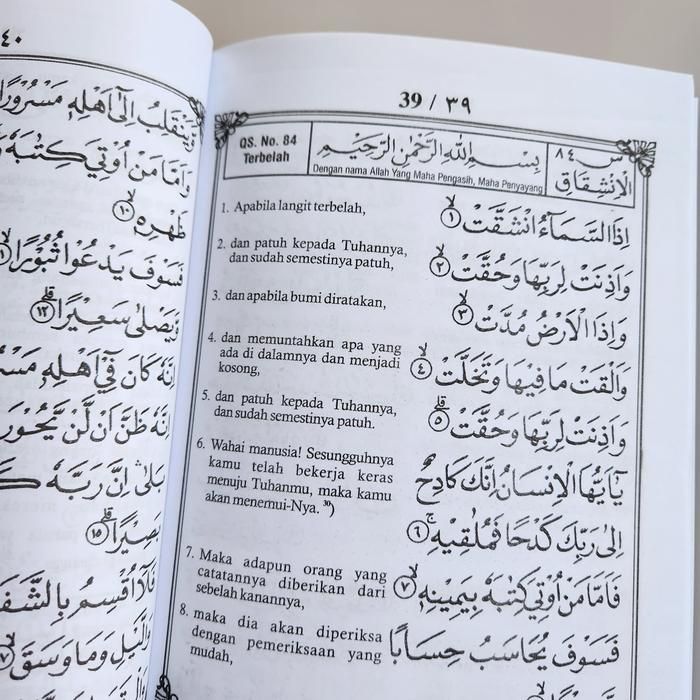 39 / ٣٩
QS. No. 84
Terbelah
بِسْمِ اللهِ الرَّحْمٰنِ الرَّحِيْمِ
Dengan nama Allah Yang Maha Pengasih, Maha Penyayang
س ٨٤
الْاِنْشِقَاق
1. Apabila langit terbelah,
اِذَا السَّمَاۤءُ انْشَقَّتْۙ ١
2. dan patuh kepada Tuhannya,
dan sudah semestinya patuh,
وَاَذِنَتْ لِرَبِّهَا وَحُقَّتْۙ ٢
3. dan apabila bumi diratakan,
وَاِذَا الْاَرْضُ مُدَّتْۙ ٣
4. dan memuntahkan apa yang
ada di dalamnya dan menjadi
kosong,
وَاَلْقَتْ مَا فِيْهَا وَتَخَلَّتْۙ ٤
5. dan patuh kepada Tuhannya,
dan sudah semestinya patuh.
وَاَذِنَتْ لِرَبِّهَا وَحُقَّتْۗ ٥
6. Wahai manusia! Sesungguhnya
kamu telah bekerja keras
menuju Tuhanmu, maka kamu
akan menemui-Nya. ³⁰)
يٰٓاَيُّهَا الْاِنْسَانُ اِنَّكَ كَادِحٌ
اِلٰى رَبِّكَ كَدْحًا فَمُلٰقِيْهِۚ ٦
7. Maka adapun orang yang
catatannya diberikan dari
sebelah kanannya,
فَاَمَّا مَنْ اُوْتِيَ كِتٰبَهٗ بِيَمِيْنِهٖۙ ٧
8. maka dia akan diperiksa
dengan pemeriksaan yang
mudah,
فَسَوْفَ يُحَاسَبُ حِسَابًا
٤٠
وَيَنْقَلِبُ اِلٰٓى اَهْلِهٖ مَسْرُوْرًا
وَاَمَّا مَنْ اُوْتِيَ كِتٰبَهٗ
ظَهْرِهٖۙ ١٠
فَسَوْفَ يَدْعُوْا ثُبُوْرًاۙ
وَّيَصْلٰى سَعِيْرًاۗ ١٢
اِنَّهٗ كَانَ فِيْٓ اَهْلِهٖ
اِنَّهٗ ظَنَّ اَنْ لَّنْ يَّحُوْرَ
بَلٰىۛ اِنَّ رَبَّهٗ
بَصِيْرًاۗ ١٥
فَلَآ اُقْسِمُ بِالشَّفَ
وَالَّيْلِ وَمَا وَسَقَۙ